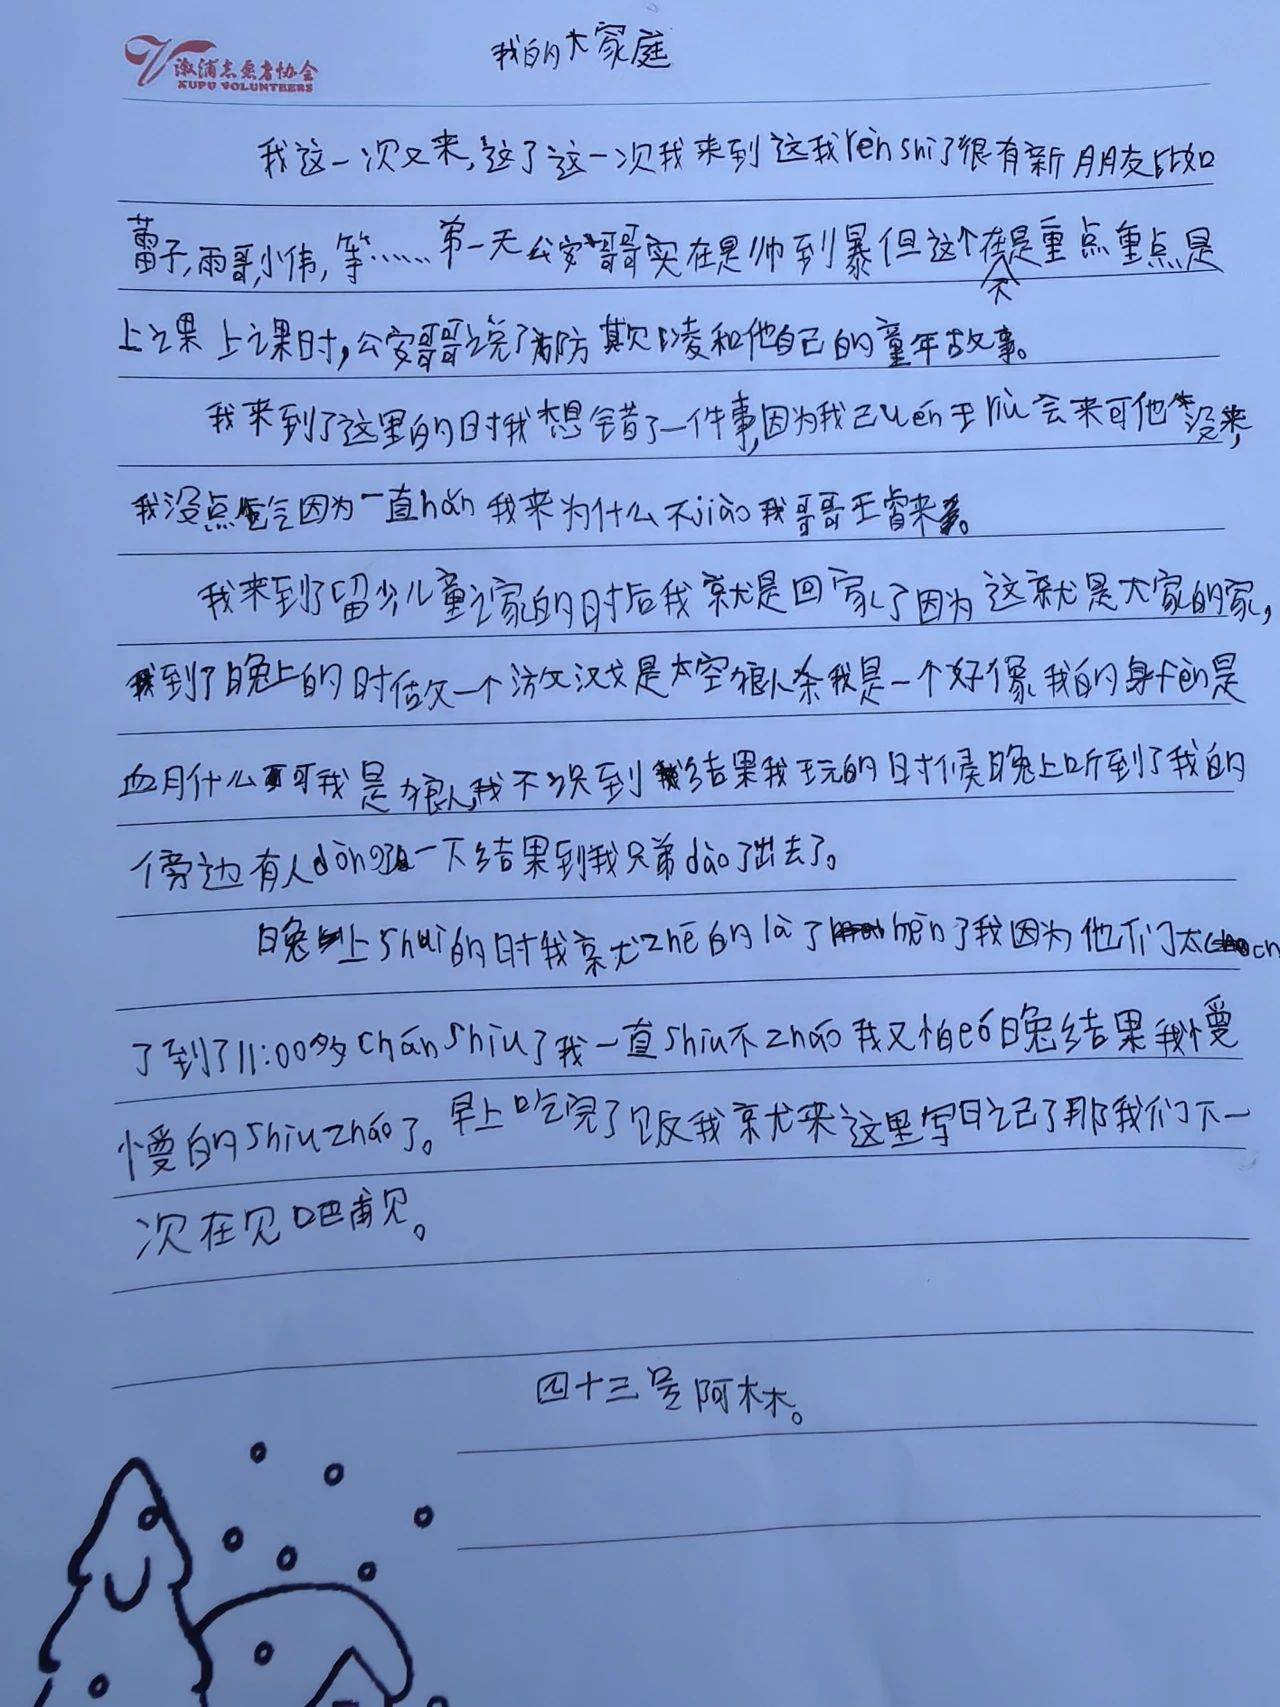 溆浦志愿者协会
XUPU VOLUNTEERS
我的大家庭
我这一次又来,这了这一次我来到这我rèn shi了很有新朋友比如
蕾子,雨哥,小伟,等……第一天公安哥哥实在是帅到暴但这个不是重点重点是
上课上课时,公安哥哥说了防欺凌和他自己的童年故事。
我来到了这里的时我想错了一件事,因为我己uén王rìu会来可他没来,
我没点生气因为一直hǎn我来为什么不jiào我哥哥王睿来。
我来到了留少儿童之家的时后我就是回家了因为这就是大家的家,
我到了晚上的时做一个游戏是太空狼人杀我是一个好像我的身fèn是
血月什么可我是狼人,我不识到结果我玩的时候晚上听到了我的
傍边有人dòng一下结果到我兄弟dào了出去了。
晚上shuì的时我就zhē的là了hěn了我因为他们太ch
了到了11:00多chán shiu了我一直shiu不zháo我又怕eó晚结果我慢
慢的shiu zháo了。早上吃完了饭我就来这里写日记了那我们下一
次在见吧再见。
四十三号阿林。